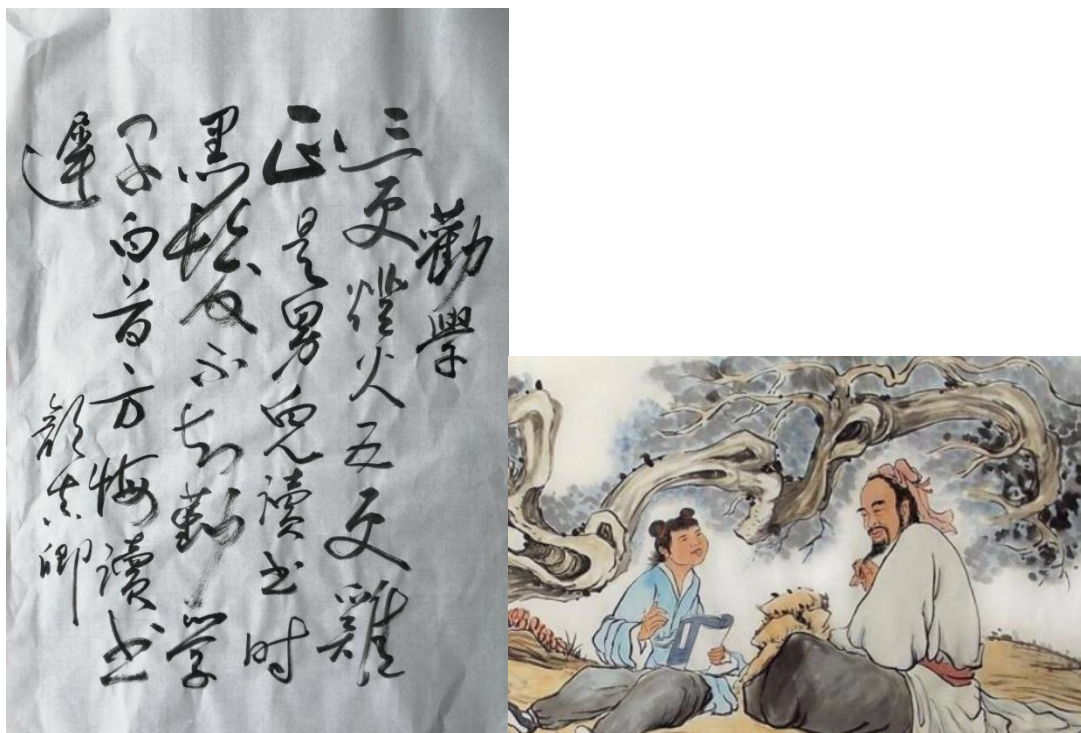 勸學
三更燈火五更雞
正是男兒讀书时
黑髮不知勤学
早白首方悔讀书
遲
顏真卿